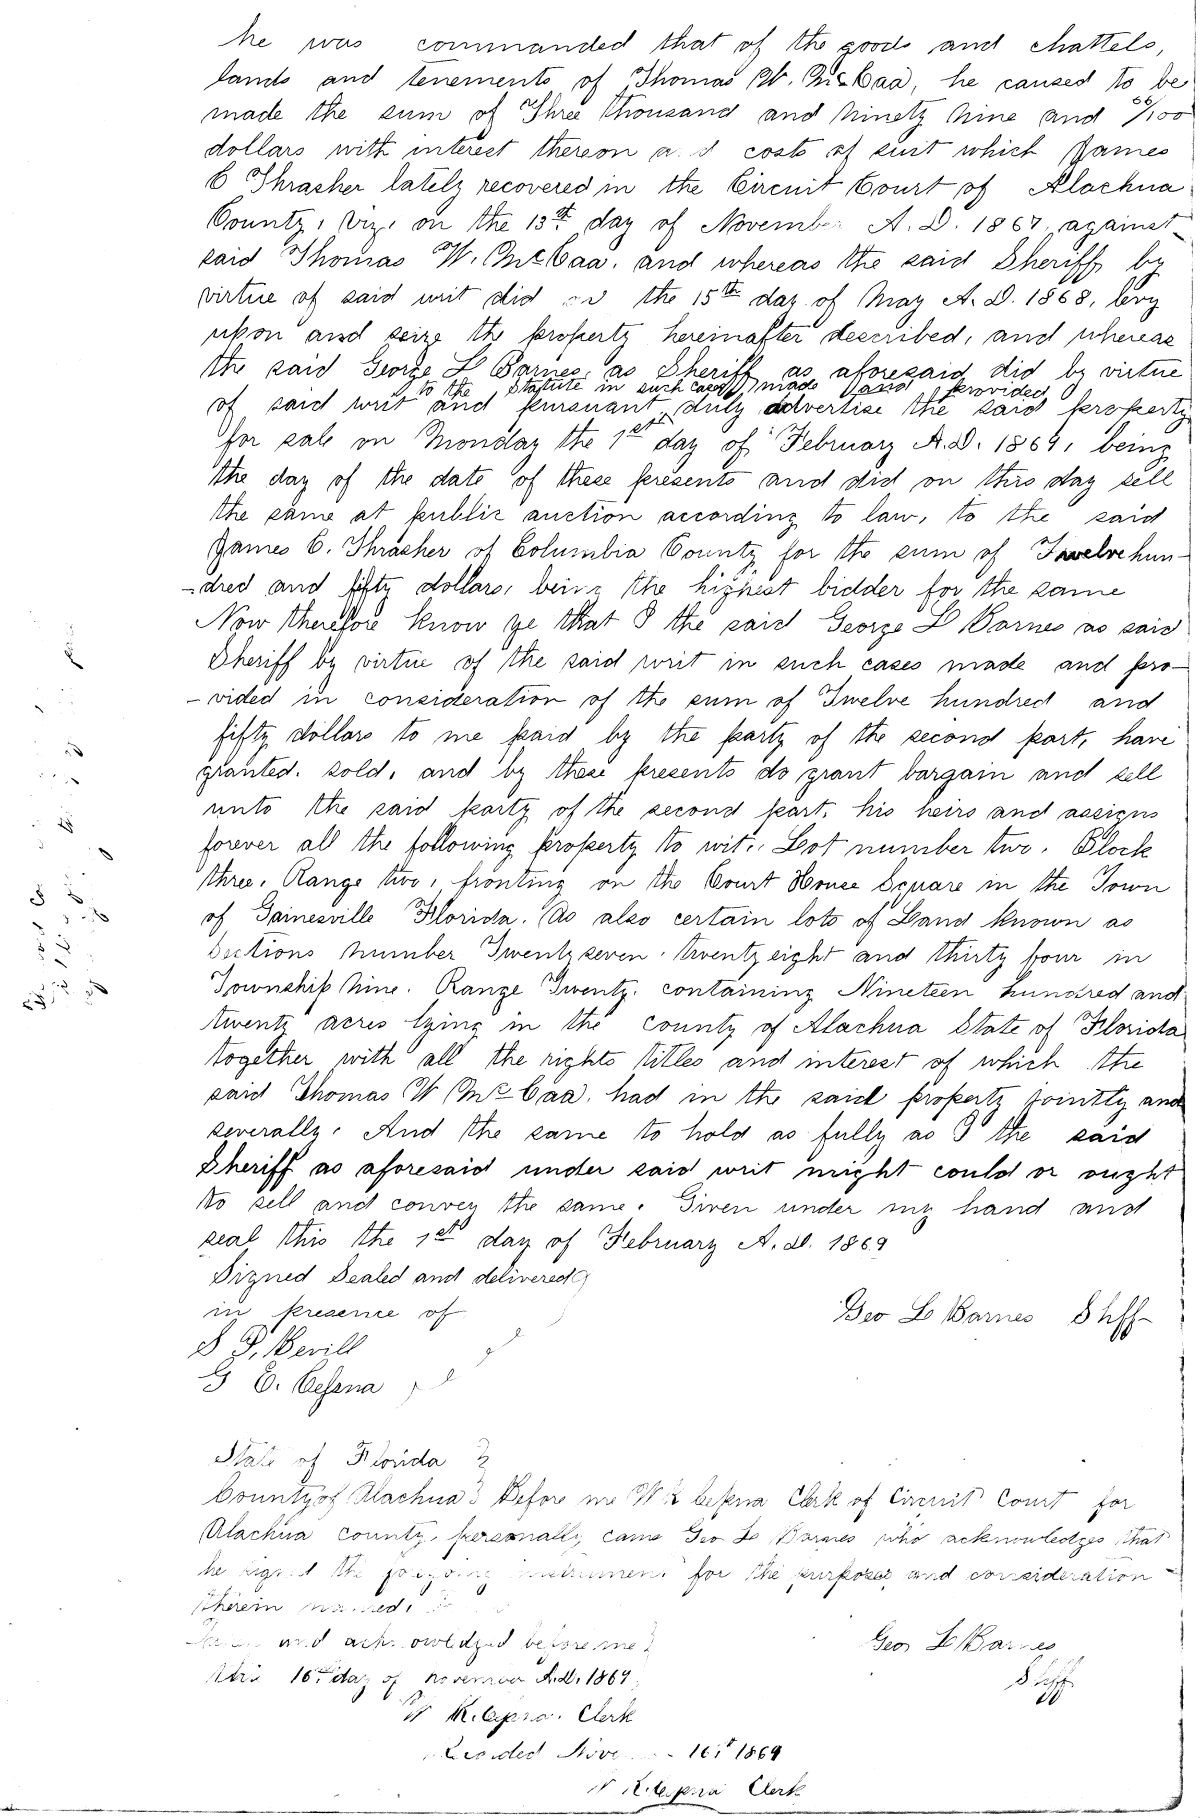 he was commanded that of the goods and chattels,
lands and tenements of Thomas W. McCaa, he caused to be
made the sum of Three thousand and Ninety Nine and 56/100
dollars with interest thereon a d costs of suit which James
C Thrasher lately recovered in the Circuit Court of Alachua
County, viz, on the 13th day of November A. D. 1867, against
said Thomas W. McCaa. and whereas the said Sheriff by
virtue of said writ did on the 15th day of May A. D. 1868, levy
upon and seize the property hereinafter described, and whereas
the said George L Barnes, as Sheriff as aforesaid did by virtue
to the Statute in such cases made and provided
of said writ and pursuant duly advertise the said property
for sale on Monday the 1st day of February A. D. 1869, being
the day of the date of these presents and did on this day sell
the same at public auction according to law, to the said
James C. Thrasher of Columbia County for the sum of Twelve hun-
-dred and fifty dollars, being the highest bidder for the same
Now therefore Know ye that I the said George L Barnes as said
Sheriff by virtue of the said writ in such cases made and pro-
-vided in consideration of the sum of Twelve hundred and
fifty dollars to me paid by the party of the second part, have
granted. sold, and by these presents do grant bargain and sell
unto the said party of the second part. his heirs and assigns
forever all the following property to wit,. Lot number two. Block
three, Range two, fronting on the Court House Square in the Town
of Gainesville Florida. As also certain lots of Land known as
Sections number Twenty seven. twenty eight and thirty four in
Township Nine. Range Twenty. containing Nineteen hundred and
twenty acres lying in the county of Alachua State of Florida
together with all the rights titles and interest of which the
said Thomas W McCaa. had in the said property jointly and
severally. And the same to hold as fully as I the said
Sheriff as aforesaid under said writ might could or ought
to sell and convey the same. Given under my hand and
seal this the 1st day of February A. D. 1869
Signed Sealed and delivered
in presence of
Geo L Barnes Shff
S P. Bevill
G E. Cessna
State of Florida
County of Alachua Before me W K Cessna Clerk of Circuit Court for
Alachua county, personally came Geo L Barnes who acknowledges that
he signed the foregoing instrument for the purposes and consideration
therein named.
and acknowledged before me
Geo L Barnes
this 16th day of November A.D. 1869
Shff
W K. Cessna. Clerk
Recorded Nove 16th 1869
W K. Cessna Clerk